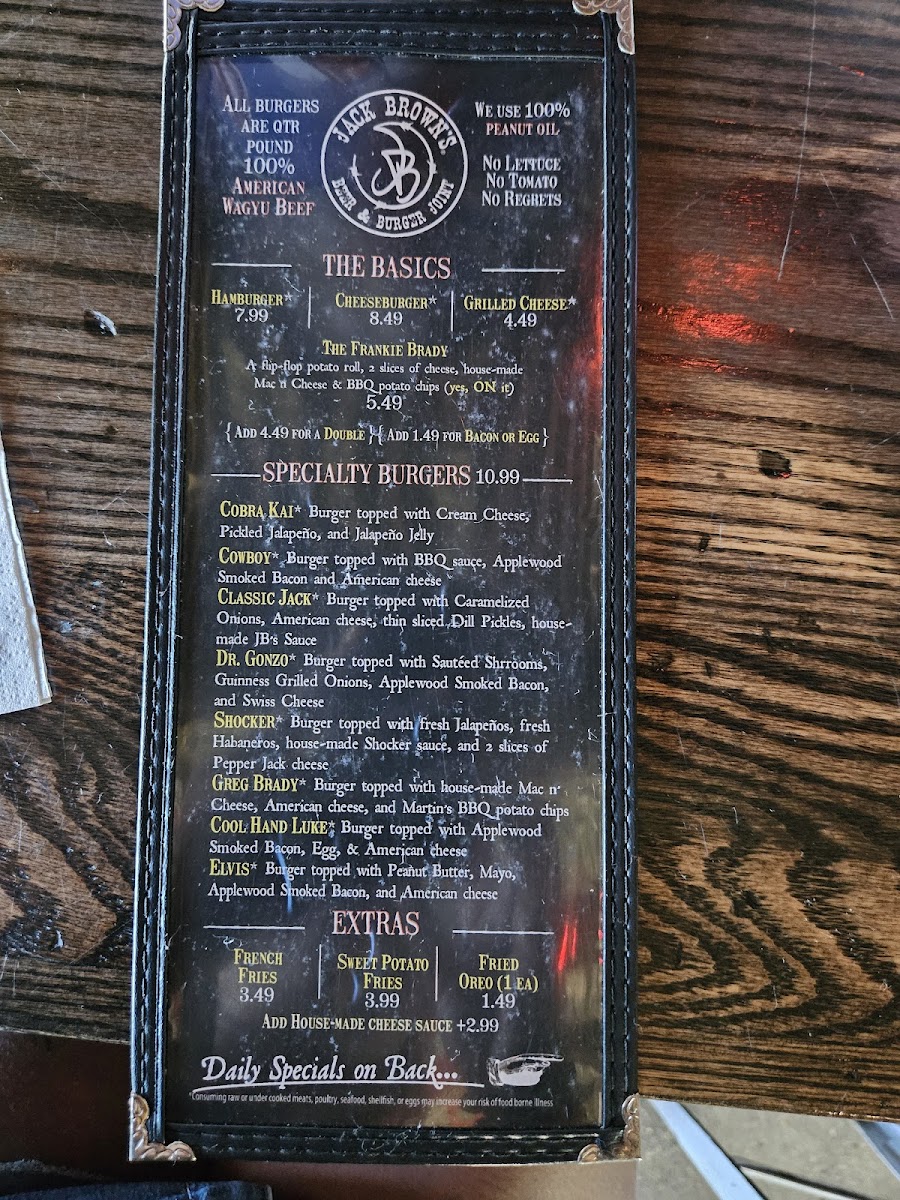 All burgers
are qtr
pound
100%
American
Wagyu Beef
Jack Brown's
JB
Beer & Burger Joint
We use 100%
peanut oil
No Lettuce
No Tomato
No Regrets
The Basics
Hamburger*
7.99
Cheeseburger*
8.49
Grilled Cheese*
4.49
The Frankie Brady
A flip-flop potato roll, 2 slices of cheese, house-made
Mac n' Cheese & BBQ potato chips (yes, ON it)
5.49
{ Add 4.49 for a Double } { Add 1.49 for Bacon or Egg }
Specialty Burgers 10.99
Cobra Kai* Burger topped with Cream Cheese,
Pickled Jalapeño, and Jalapeño Jelly
Cowboy* Burger topped with BBQ sauce, Applewood
Smoked Bacon and American cheese
Classic Jack* Burger topped with Caramelized
Onions, American cheese, thin sliced Dill Pickles, house-
made JB's Sauce
Dr. Gonzo* Burger topped with Sautéed Shrrooms,
Guinness Grilled Onions, Applewood Smoked Bacon,
and Swiss Cheese
Shocker* Burger topped with fresh Jalapeños, fresh
Habaneros, house-made Shocker sauce, and 2 slices of
Pepper Jack cheese
Greg Brady* Burger topped with house-made Mac n'
Cheese, American cheese, and Martin's BBQ potato chips
Cool Hand Luke* Burger topped with Applewood
Smoked Bacon, Egg, & American cheese
Elvis* Burger topped with Peanut Butter, Mayo,
Applewood Smoked Bacon, and American cheese
Extras
French
Fries
3.49
Sweet Potato
Fries
3.99
Fried
Oreo (1 ea)
1.49
Add House-made cheese sauce +2.99
Daily Specials on Back...
*Consuming raw or under cooked meats, poultry, seafood, shellfish, or eggs may increase your risk of food borne illness